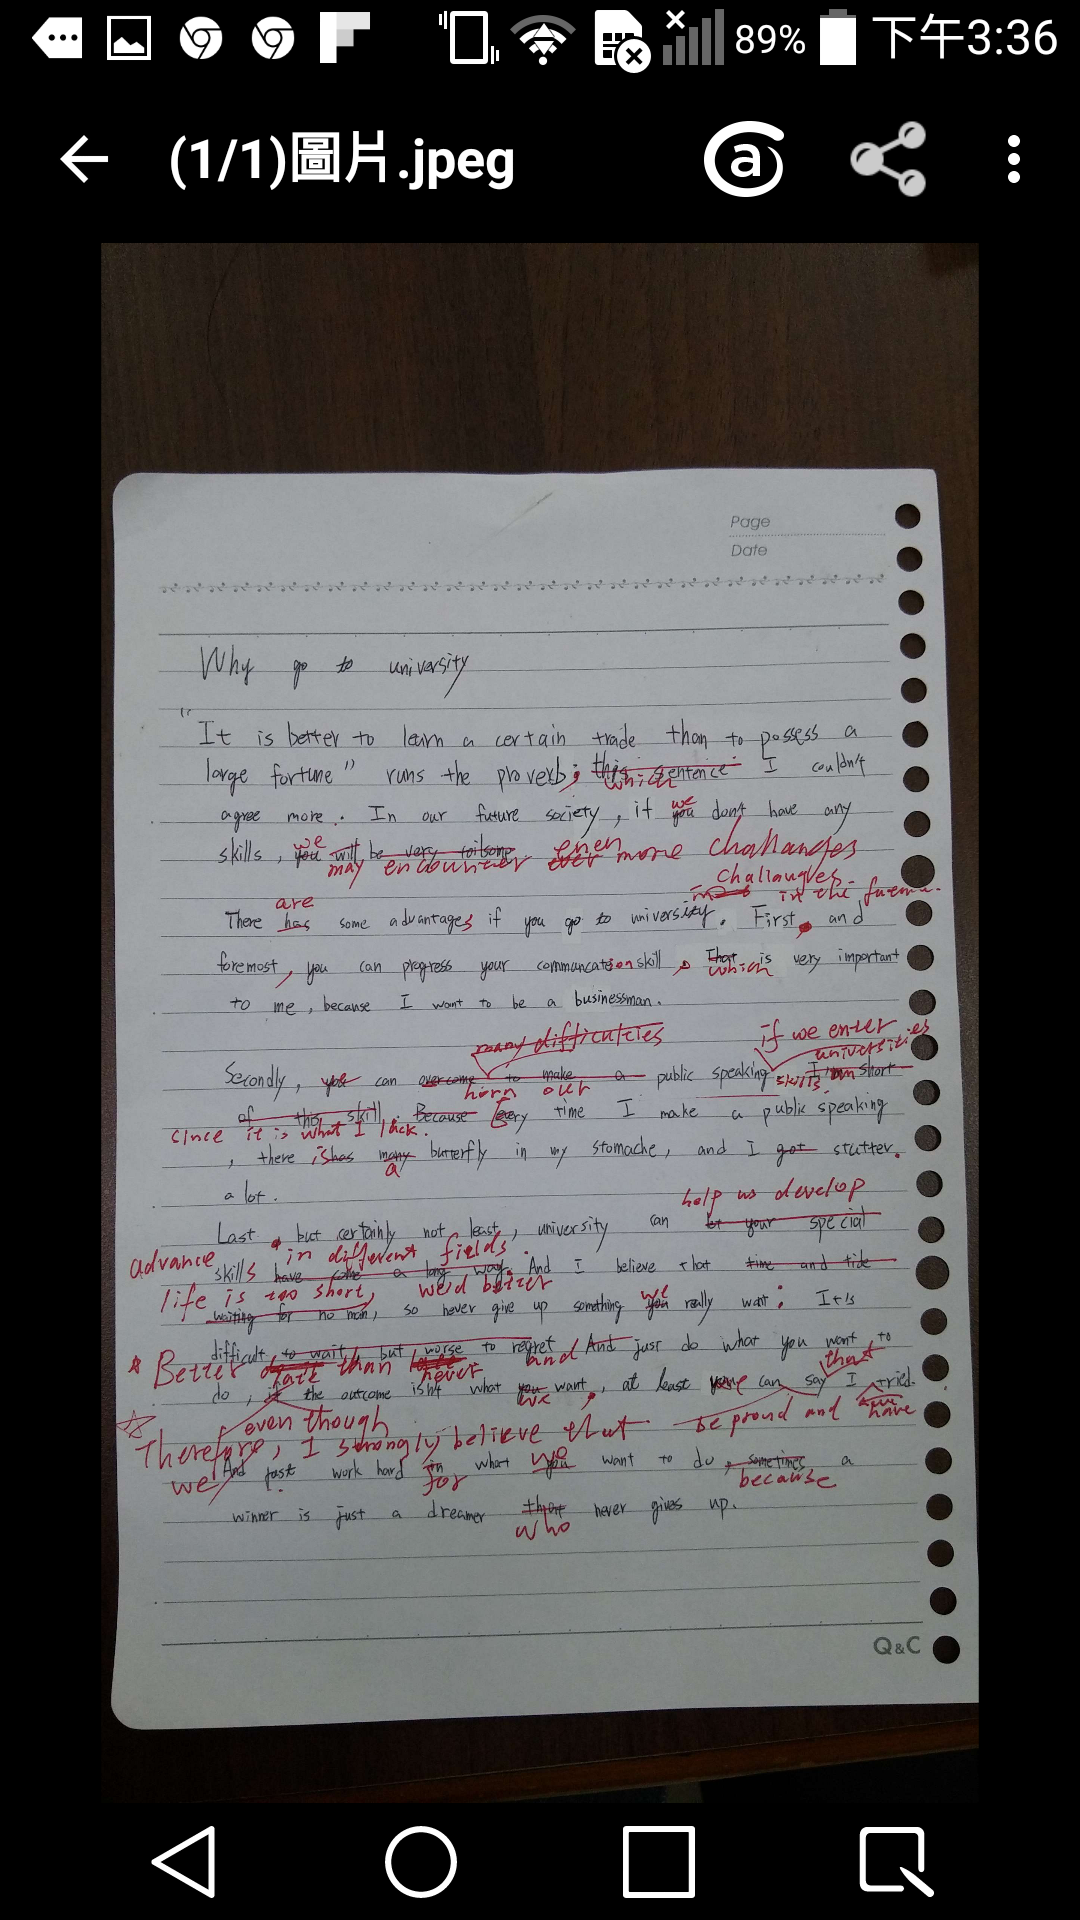 89% 下午3:36
(1/1)圖片.jpeg
Page
Date
Why go to university
"It is better to learn a certain trade than to possess a
large fortune" runs the proverb; this sentence I couldn't
which
agree more. In our future society, if you don't have any
we
skills, you will be very toilsome
we may encounter even more challanges
challanges.
are in the
There has some advantages if you go to university. First, and
foremost, you can progress your communcation skill, That is very important
which
to me, because I want to be a businessman.
many difficulties if we enter
universities
Secondly, you can overcome to make a public speaking I'm short
horn our skills
of this skill. Because Every time I make a public speaking
cince it is what I lack.
, there is has many butterfly in my stomache, and I got stutter.
a
a lot.
help us develop
Last, but certainly not least, university can let your special
advance in different fields.
skills have come a long way. And I believe that time and tide
life is too short, we'd better
waiting for no man, so never give up something you really want; It's
we
difficult to wait, but worse to regret And just do what you want to
* Better late than never and that
do, if the outcome isn't what you want, at least can say I tried.
we have
even though be proud and
Therefore, I strongly believe that
And just work hard in what you want to do, sometimes a
we for we because
winner is just a dreamer that never gives up.
who
Q&C